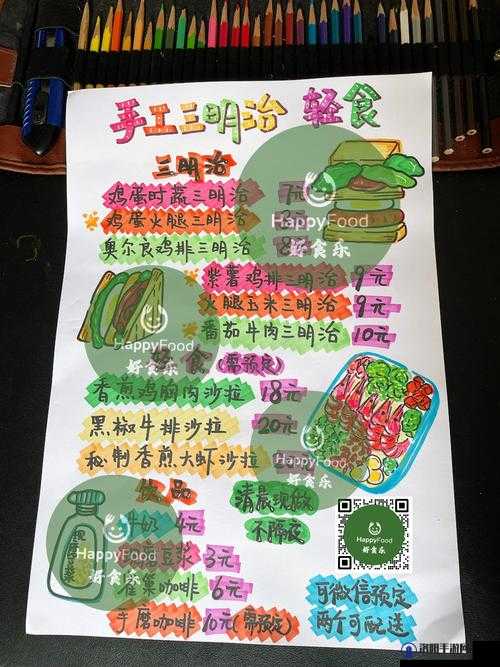 手工三明治 轻食
三明治
鸡蛋时蔬三明治 7元
鸡蛋火腿三明治
奥尔良鸡排三明治 8
HappyFood
好食乐
紫薯鸡排三明治 9元
火腿玉米三明治 9元
番茄牛肉三明治 10元
HappyFood
好食乐
轻食(需预定)
香煎鸡胸肉沙拉 18元
黑椒牛排沙拉 20元
秘制香煎大虾沙拉
HappyFood
好食乐
饮品
清晨现做
不隔夜
牛奶 4元
豆浆 3元
雀巢咖啡 6元
手磨咖啡 10元(需预定)
HappyFood
好食乐
HappyFood
好食乐
可微信预定
两个可配送